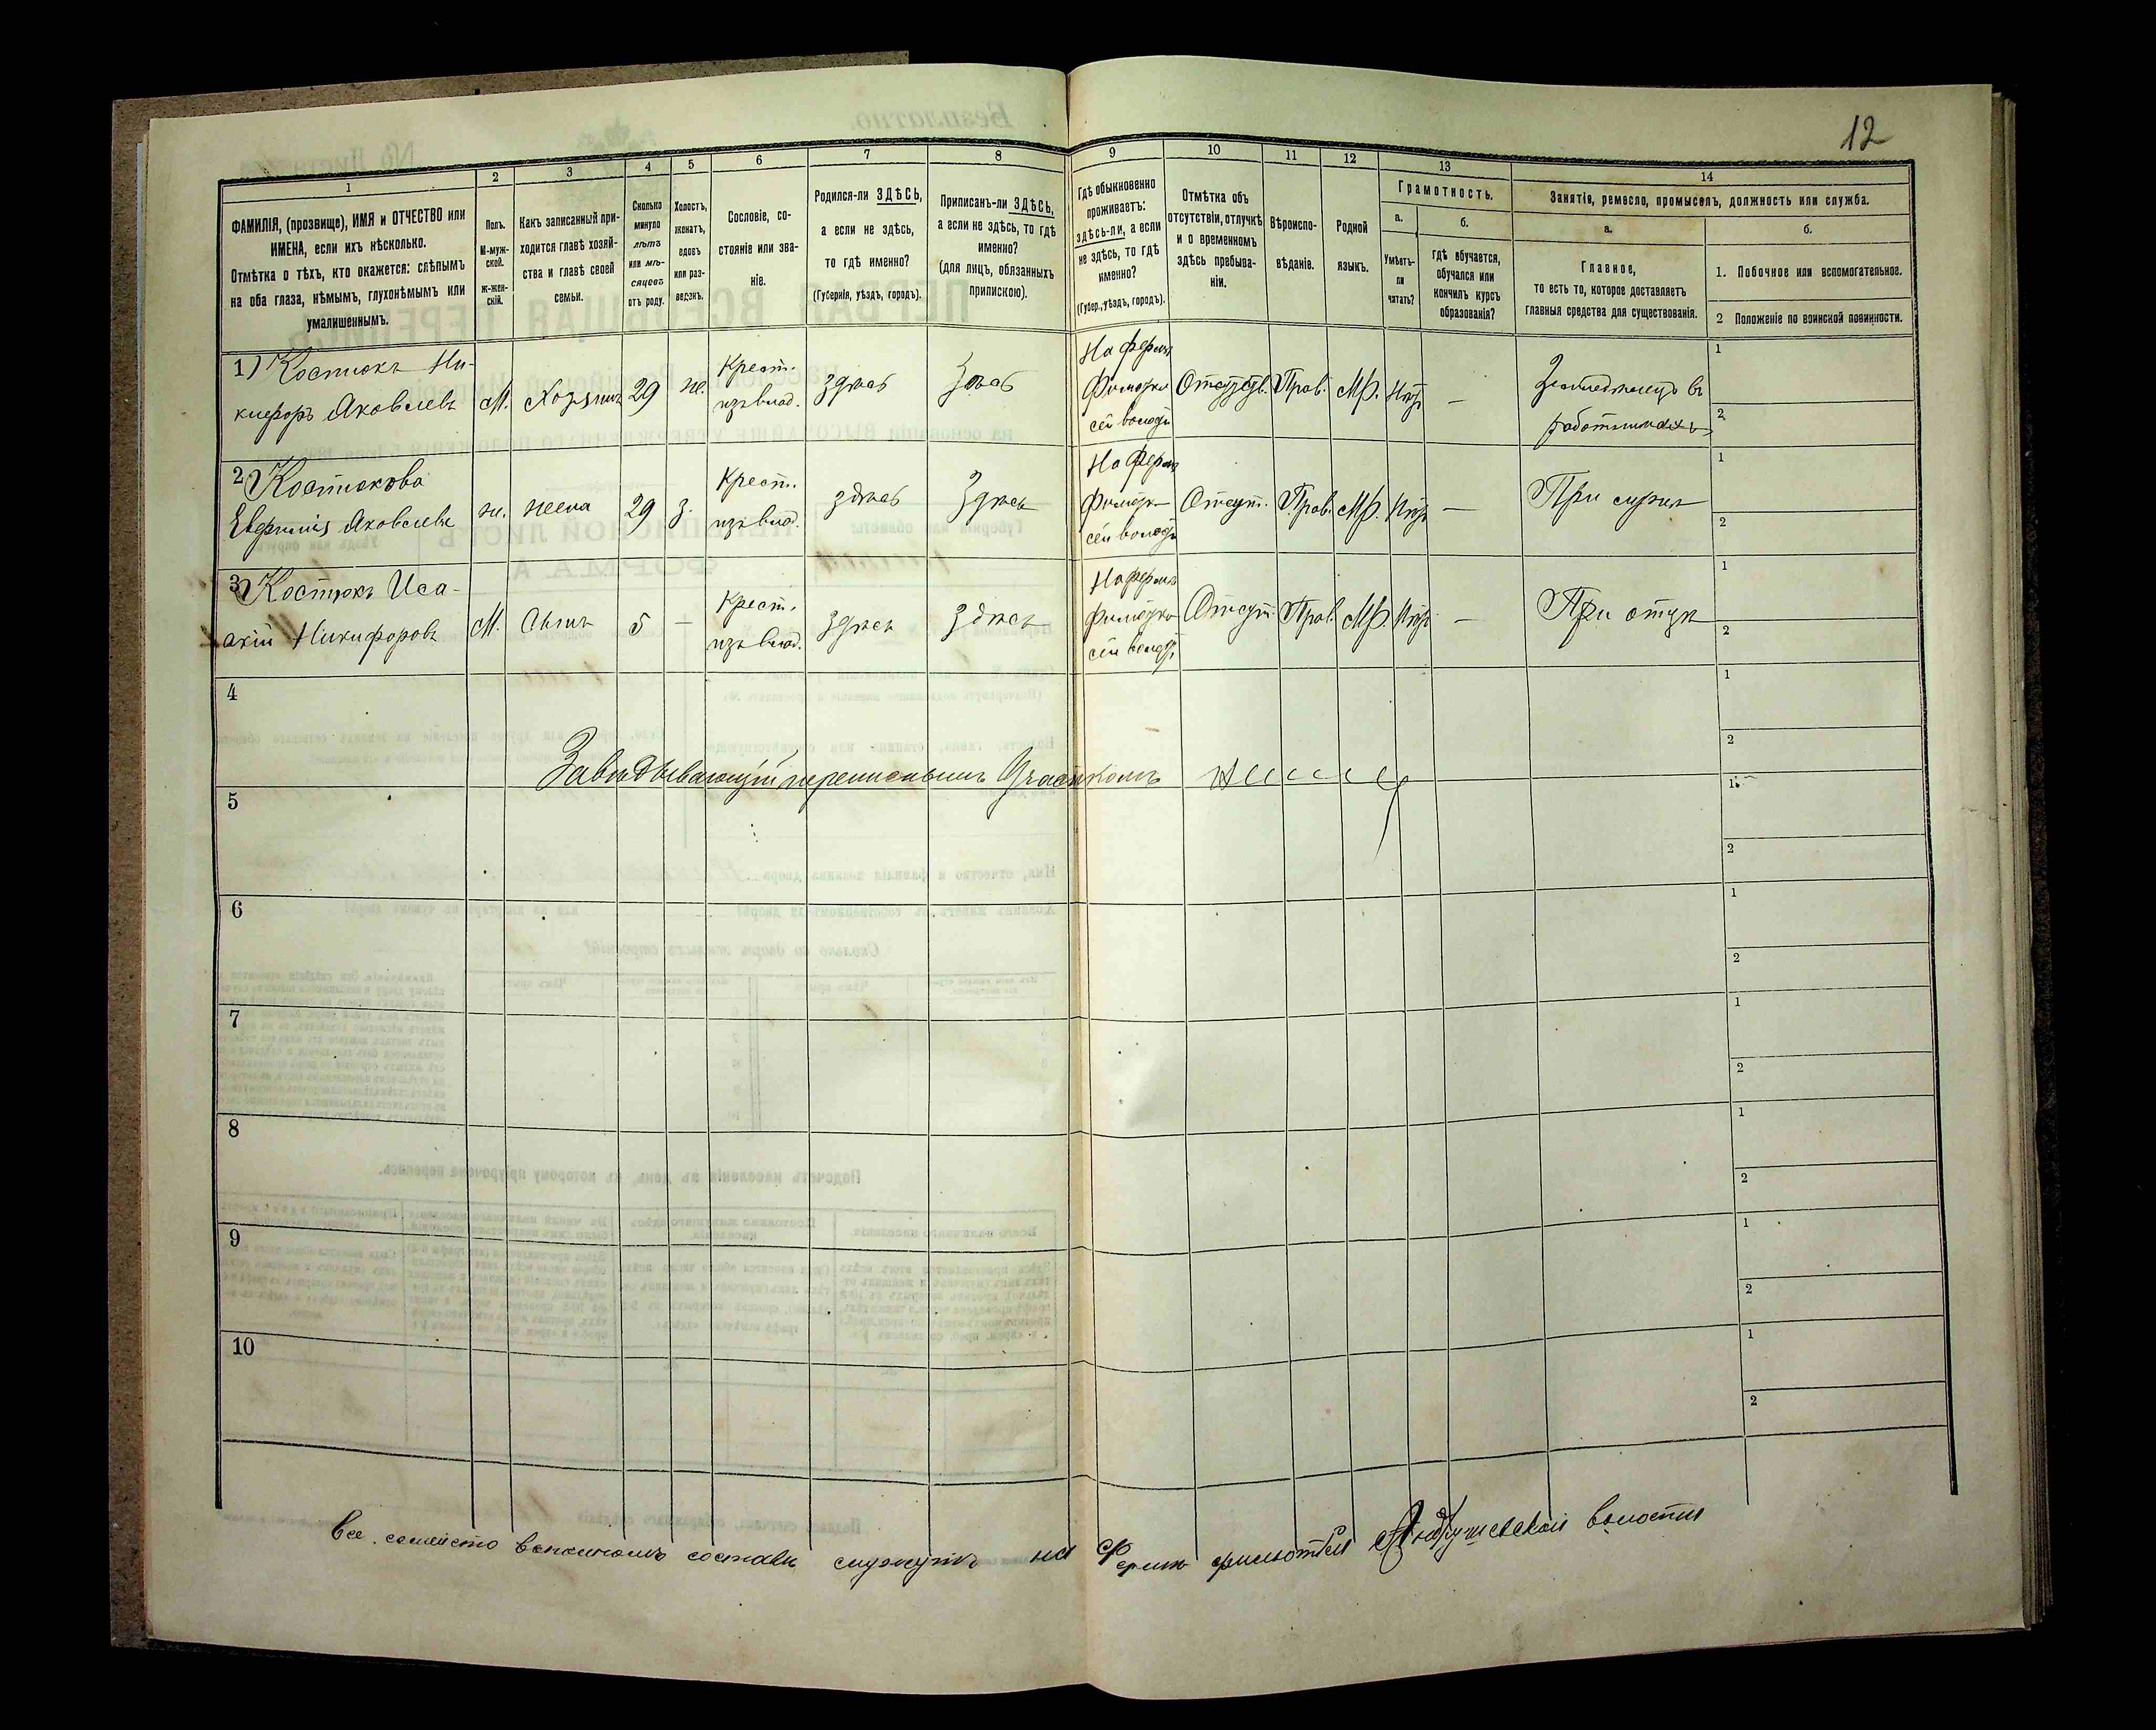 12
1
2
3
4
5
6
7
8
9
10
11
12
13
14
ФАМИЛІЯ, (прозвище), ИМЯ и ОТЧЕСТВО или
ИМЕНА, если ихъ нѣсколько.
Отмѣтка о тѣхъ, кто окажется: слѣпымъ
на оба глаза, нѣмымъ, глухонѣмымъ или
умалишеннымъ.
Полъ.
М-муж-
ской.
ж-жен-
скій.
Какъ записанный при-
ходится главѣ хозяй-
ства и главѣ своей
семьи.
Сколько
минуло
лѣтъ
или мѣ-
сяцевъ
отъ роду.
Холостъ,
женатъ,
вдовъ
или раз-
веденъ.
Сословіе, со-
стояніе или зва-
ніе.
Родился-ли ЗДѢСЬ,
а если не здѣсь,
то гдѣ именно?
(Губернія, уѣздъ, городъ).
Приписанъ-ли ЗДѢСЬ,
а если не здѣсь, то гдѣ
именно?
(для лицъ, обязанныхъ
припискою).
Гдѣ обыкновенно
проживаетъ:
здѣсь-ли, а если
не здѣсь, то гдѣ
именно?
(Губер., уѣздъ, городъ).
Отмѣтка объ
отсутствіи, отлучкѣ
и о временномъ
здѣсь пребыва-
ніи.
Вѣроиспо-
вѣданіе.
Родной
языкъ.
Грамотность.
а.
Умѣетъ-
ли
читать?
б.
гдѣ обучается,
обучался или
кончилъ курсъ
образованія?
Занятіе, ремесло, промыселъ, должность или служба.
а.
Главное,
то есть то, которое доставляетъ
главныя средства для существованія.
б.
1. Побочное или вспомогательное.
2 Положеніе по воинской повинности.
1) Костюкъ Ни-
кифоръ Яковлевъ
М.
Хозяинъ
29
ж.
Крест.
изъ влад.
здѣсь
Здѣсь
На фермѣ
сей волости
Отсутств.
Прав.
Мр.
Нѣтъ
—
Земледѣлецъ въ
работникахъ
1
2
2) Костюкова
Евфимія Яковлева
ж.
жена
29
з.
Крест.
изъ влад.
здѣсь
Здѣсь
На фермѣ
сей волости
Отсут.
Прав.
Мр.
Нѣтъ
—
При мужѣ
1
2
3) Костюкъ Иса-
акій Никифоровъ
М.
Сынъ
5
—
Крест.
изъ влад.
здѣсь
Здѣсь
На фермѣ
сей волости
Отсут.
Прав.
Мр.
Нѣтъ
—
При отцѣ
1
2
4
1
2
Завѣдывающій переписнымъ Участкомъ
5
1
2
6
1
2
7
1
2
8
1
2
9
1
2
10
1
2
Все семейсто въ полномъ составѣ служутъ на Фермѣ Андрушевской волости